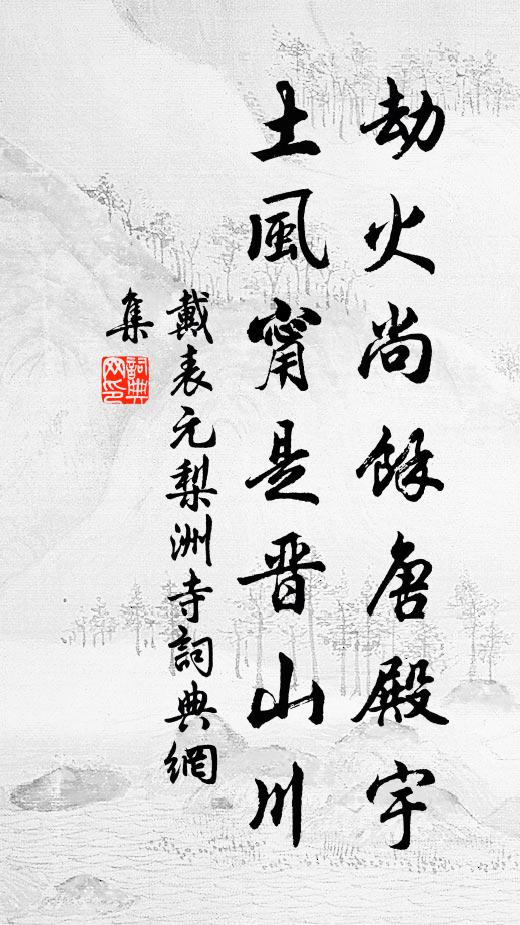 劫火尚餘唐殿宇
土風甯是晋山川
戴表元梨洲寺詞典網
集
詞典网印